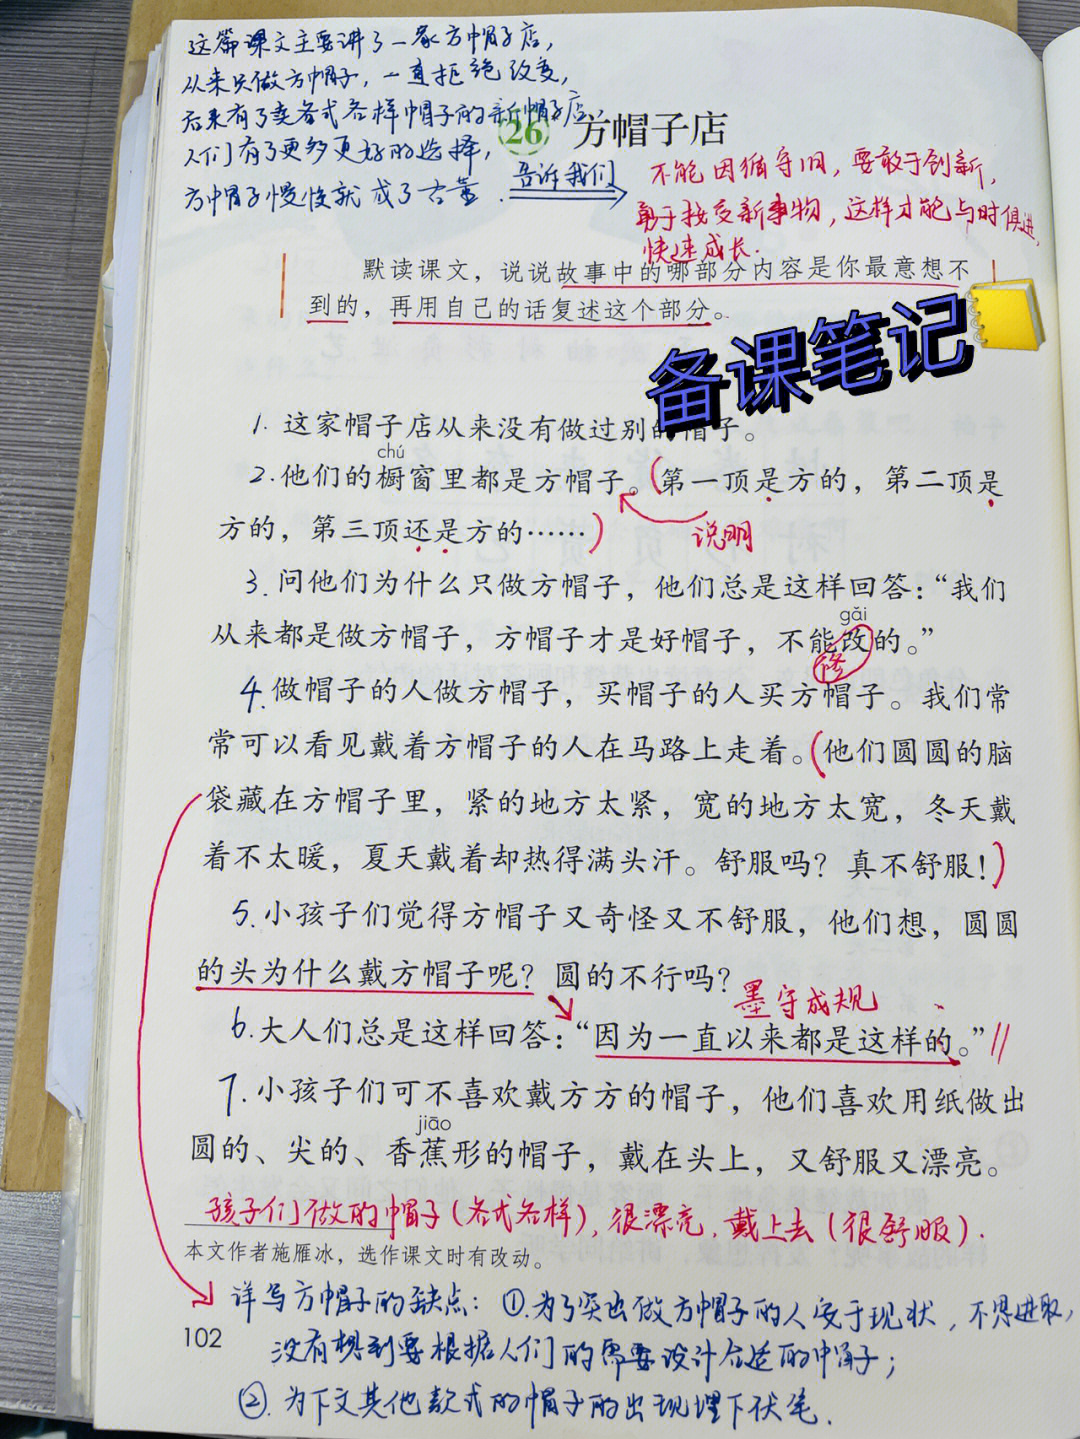 这篇课文主要讲了一家方帽子店，
从来只做方帽子，一直拒绝改变，
后来有了卖各式各样帽子的新帽子店
人们有了更多更好的选择，
方帽子慢慢就成了古董．
告诉我们
26 方帽子店
不能因循守旧，要敢于创新，
勇于接受新事物，这样才能与时俱进，
快速成长．
默读课文，说说故事中的哪部分内容是你最意想不
到的，再用自己的话复述这个部分。
备课笔记
1. 这家帽子店从来没有做过别的帽子。
chú
2.他们的橱窗里都是方帽子。（第一顶是方的，第二顶是
方的，第三顶还是方的……）
说明
3. 问他们为什么只做方帽子，他们总是这样回答：“我们
gǎi
从来都是做方帽子，方帽子才是好帽子，不能改的。”
修
4.做帽子的人做方帽子，买帽子的人买方帽子。我们常
常可以看见戴着方帽子的人在马路上走着。（他们圆圆的脑
袋藏在方帽子里，紧的地方太紧，宽的地方太宽，冬天戴
着不太暖，夏天戴着却热得满头汗。舒服吗？真不舒服！）
5.小孩子们觉得方帽子又奇怪又不舒服，他们想，圆圆
的头为什么戴方帽子呢？圆的不行吗？
墨守成规
6.大人们总是这样回答：“因为一直以来都是这样的。”//
7. 小孩子们可不喜欢戴方方的帽子，他们喜欢用纸做出
jiāo
圆的、尖的、香蕉形的帽子，戴在头上，又舒服又漂亮。
孩子们做的帽子（各式各样），很漂亮，戴上去（很舒服）．
本文作者施雁冰，选作课文时有改动。
详写方帽子的缺点：①.为了突出做方帽子的人安于现状，不思进取，
102
没有想到要根据人们的需要设计合适的帽子；
②.为下文其他款式的帽子的出现埋下伏笔．